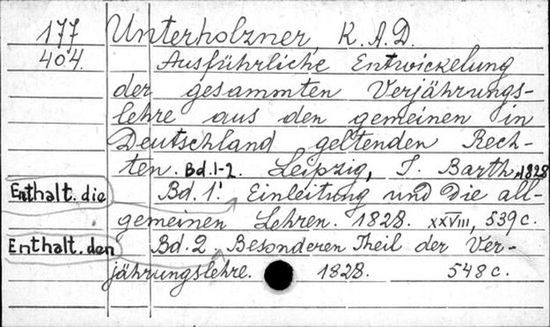 177 Unterholzner, K. A. D.
404. Ausführliche Entwickelung
der gesammten Verjährungs-
lehre aus den gemeinen in
Deutschland geltenden Rech-
ten. Bd. 1-2. Leipzig, J. Barth, 1828
Enthalt. die Bd. 1. Einleitung und die all-
gemeinen Lehren. 1828. XXVIII, 539 c.
Enthalt. den Bd. 2. Besonderen Theil der Ver-
jährungslehre. 1828. 548 c.